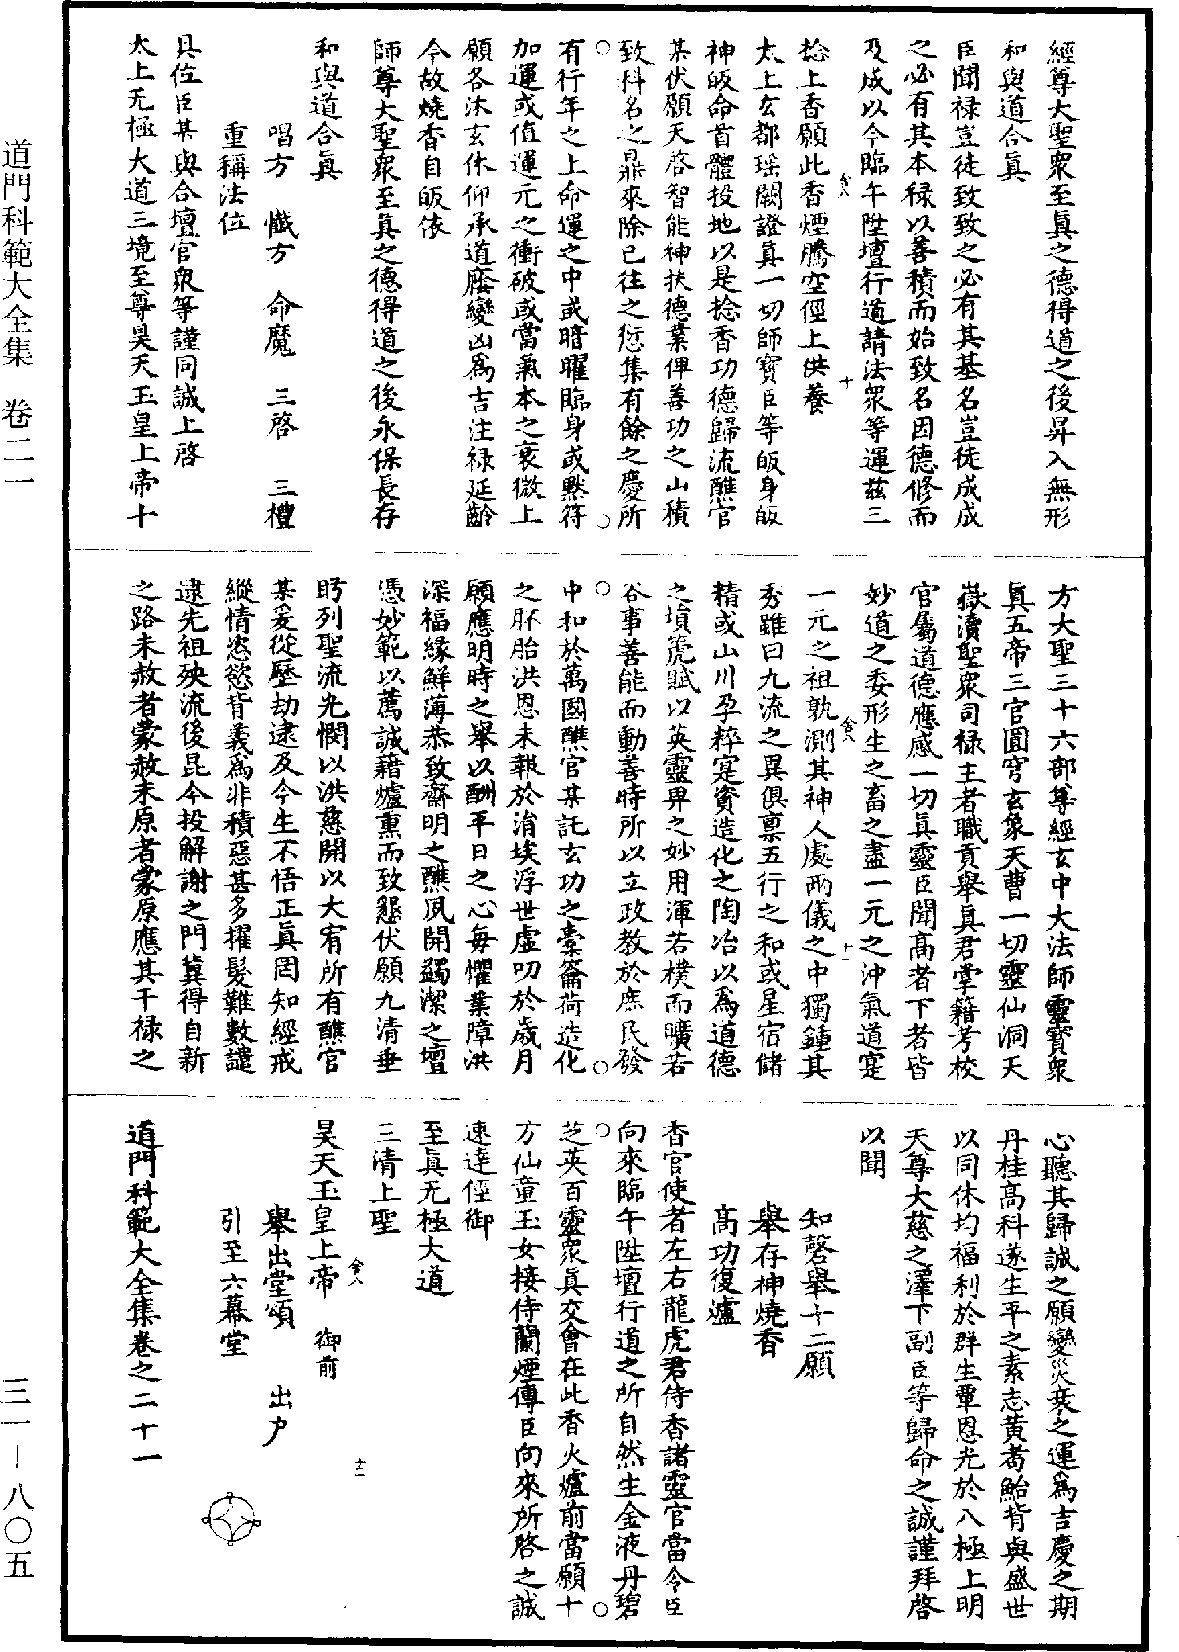 經尊大聖衆至眞之德得道之後昇入無形
和與道合眞
臣聞禄豈徒致致之必有其基名豈徒成成
之必有其本禄以善積而始致名因德修而
及成以今臨午陞壇行道請法衆等運茲三
捻上香願此香煙騰空徑上供養
太上玄都瑶闕證真一切師寶臣等皈身皈
神皈命首體投地以是捻香功德歸流醮官
某伏願天啓智能神扶德業俾善功之山積
致科名之鼎來除已往之愆集有餘之慶所
有行年之上命運之中或暗曜臨身或黙符
加運或值運元之衝破或當氣本之衰微上
願各沐玄休仰承道廕變凶爲吉注禄延齡
今故燒香自皈依
師尊大聖衆至真之德得道之後永保長存
和與道合眞
唱方 懺方 命魔 三啓 三禮
重稱法位
具位臣某與合壇官衆等謹同誠上啓
太上无極大道三境至尊昊天玉皇上帝十
方大聖三十六部尊經玄中大法師靈寳衆
真五帝三官圓穹玄象天曹一切靈仙洞天
嶽瀆聖衆司禄主者職貢舉真君掌籍考校
官屬道德應感一切真靈臣聞高者下者皆
妙道之委形生之畜之盡一元之沖氣道寔
一元之祖孰測其神人處兩儀之中獨鍾其
秀雖曰九流之異俱禀五行之和或星宿儲
精或山川孕粹寔資造化之陶冶以爲道德
之塤箎賦以英靈畀之妙用渾若樸而曠若
谷事善能而動善時所以立政教於庶民發
中和於萬國醮官某託玄功之橐籥荷造化
之胚胎洪恩未報於涓埃浮世虛叨於歲月
願應明時之舉以酬平日之心每懼業障洪
深福緣鮮薄恭致齋明之醮夙開蠲潔之壇
憑妙範以薦誠藉爐熏而致懇伏願九清垂
盻列聖流光憫以洪慈開以大宥所有醮官
某爰從歷劫逮及今生不悟正真罔知經戒
縱情恣慾背義爲非積惡甚多擢髮難數譴
逮先祖殃流後昆今投解謝之門冀得自新
之路未赦者蒙赦未原者蒙原應其干禄之
心聽其歸誠之願變災衰之運爲吉慶之期
丹桂高科遂生平之素志黃耈鮐背與盛世
以同休均福利於群生覃恩光於八極上明
天尊大慈之澤下副臣等歸命之誠謹拜啓
以聞
知磬舉十二願
舉存神燒香
高功復爐
香官使者左右龍虎君侍香諸靈官當令臣
向來臨午陞壇行道之所自然生金液丹碧
芝英百靈衆真交會在此香火爐前當願十
方仙童玉女接侍蘭煙傳臣向來所啓之誠
速達徑御
至真无極大道
三清上聖
昊天玉皇上帝 御前
舉出堂頌 出戶
引至六幕堂
道門科範大全集卷之二十一
道門科範大全集 卷二一
三一—八〇五